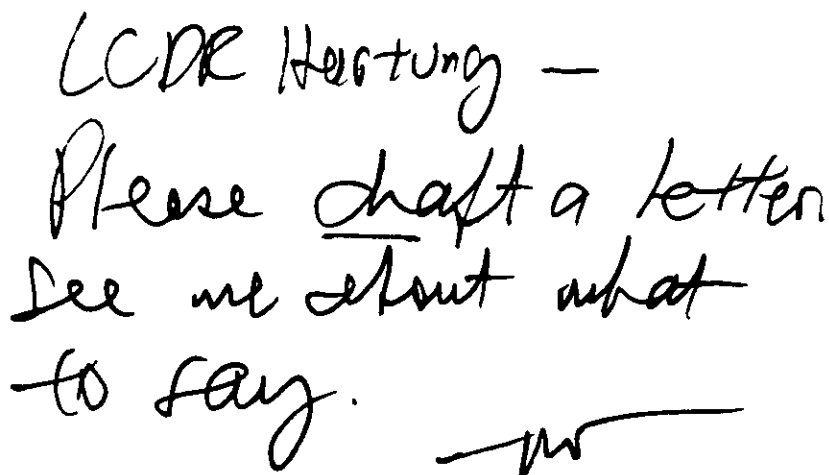 LCDR Hartung —
Please draft a letter
see me about what
to say.